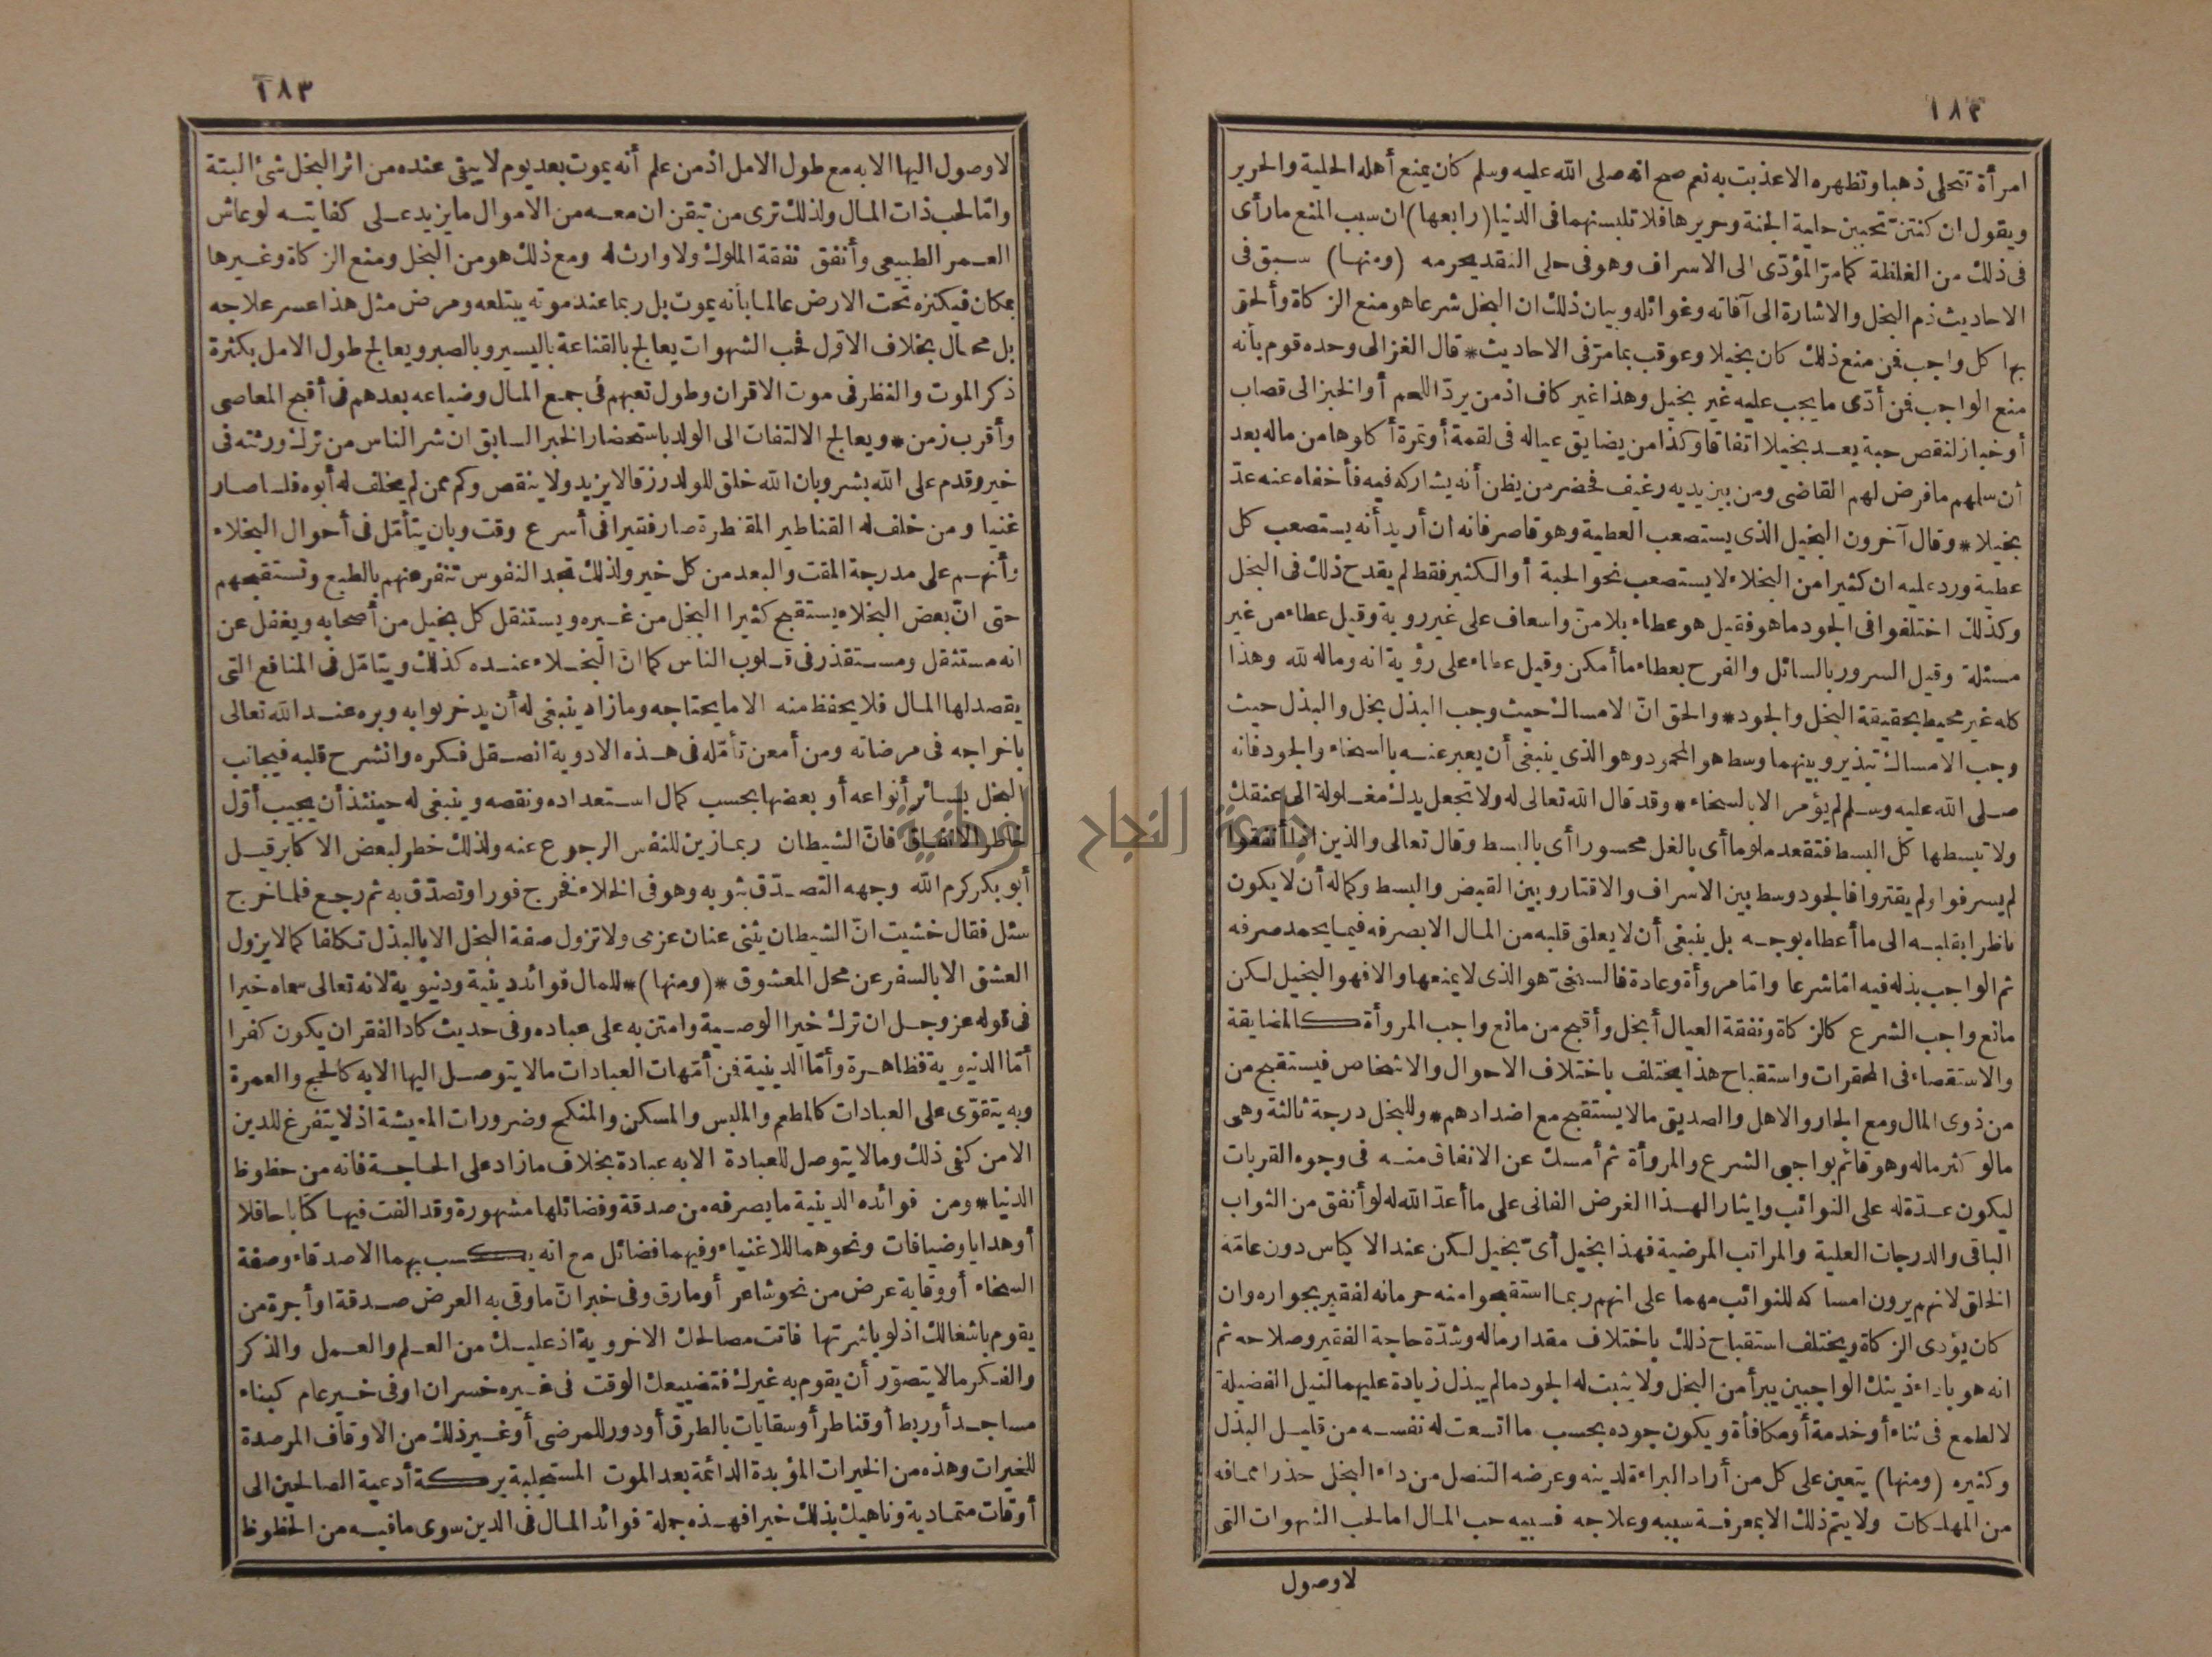 ١٨٢
امرأة تتحلى ذهبا وتظهره الا عذبت به نعم صح انه صلى الله عليه وسلم كان يمنع أهله الحلية والحرير
ويقول ان كنتن تحببن حلية الجنة وحريرها فلا تلبسنهما فى الدنيا (رابعها) ان سبب المنع ما رأى
فى ذلك من الغلظة كمامرّ المؤدّى الى الاسراف وهو فى حلى النقد يحرمه (ومنها) سبق فى
الاحاديث ذم البخل والاشارة الى آفاته وغوائله وبيان ذلك ان البخل شرعا هو منع الزكاة وألحق
بها كل واجب فمن منع ذلك كان بخيلا وعوقب بما مرّ فى الاحاديث * قال الغزالى وحده قوم بأنه
منع الواجب فمن أدّى ما يجب عليه غير بخيل وهذا غير كاف اذ من يردّ اللحم أو الخبز الى قصاب
أو خباز لنقص حبة يعد بخيلا اتفاقا وكذا من يضايق عياله فى لقمة أو تمرة أكلوها من ماله بعد
أن سلمهم ما فرض لهم القاضى ومن بين يديه رغيف فحضر من يظن أنه يشاركه فيه فأخفاه عنه عدّ
بخيلا * وقال آخرون البخيل الذى يستصعب العطية وهو قاصر فانه ان أريد أنه يستصعب كل
عطية ورد عليه ان كثيرا من البخلاء لا يستصعب نحو الحبة أو الكثير فقط لم يقدح ذلك فى البخل
وكذلك اختلفوا فى الجود ما هو فقيل هو عطاء بلا منّ واسعاف على غير روية وقيل عطاء من غير
مسئلة وقيل السرور بالسائل والفرح بعطاء ما أمكن وقيل عطاء على رؤية انه وماله لله وهذا
كله غير محيط بحقيقة البخل والجود * والحق انّ الامساك حيث وجب البذل بخل والبذل حيث
وجب الامساك تبذير وبينهما وسط هو المحمود وهو الذى ينبغى أن يعبر عنه بالسخاء والجود فانه
صلى الله عليه وسلم لم يؤمر الا بالسخاء * وقد قال الله تعالى له ولا تجعل يدك مغلولة الى عنقك
ولا تبسطها كل البسط فتقعد ملوما أى بالغل محسورا أى بالبسط وقال تعالى والذين اذا أنفقوا
لم يسرفوا ولم يقتروا فالجود وسط بين الاسراف والاقتار وبين القبض والبسط وكماله أن لا يكون
ناظرا بقلبه الى ما أعطاه بوجه بل ينبغى أن لا يعلق قلبه من المال الا بصرفه فيما يحمد صرفه
ثم الواجب بذله فيه امّا شرعا وامّا مروأة وعادة فالسخىّ هو الذى لا يمنعها والا فهو البخيل لكن
مانع واجب الشرع كالزكاة ونفقة العيال أبخل وأقبح من مانع واجب المروأة كالمضايقة
والاستقصاء فى المحقرات واستقباح هذا يختلف باختلاف الاحوال والاشخاص فيستقبح من
من ذوى المال ومع الجار والاهل والصديق ما لا يستقبح مع اضدادهم * وللبخل درجة ثالثة وهى
ما لو كثر ماله وهو قائم بواجبى الشرع والمروأة ثم أمسك عن الانفاق منه فى وجوه القربات
ليكون عدّة له على النوائب وايثارا لهذا الغرض الفانى على ما أعدّ الله له لو أنفق من الثواب
الباقى والدرجات العلية والمراتب المرضية فهذا بخيل أىّ بخيل لكن عند الاكياس دون عامّة
الخلق لانهم يرون امساكه للنوائب مهما على انهم ربما استقبحوا منه حرمانه لفقير بجواره وان
كان يؤدى الزكاة ويختلف استقباح ذلك باختلاف مقدار ماله وشدّة حاجة الفقير وصلاحه ثم
انه هو باداء ذينك الواجبين يبرأ من البخل ولا يثبت له الجود ما لم يبذل زيادة عليهما لنيل الفضيلة
لا لطمع فى ثناء أو خدمة أو مكافأة ويكون جوده بحسب ما اتسعت له نفسه من قليل البذل
وكثيره (ومنها) يتعين على كل من أراد البراءة لدينه وعرضه التنصل من داء البخل حذرا مما فيه
من المهلكات ولا يتم ذلك الا بمعرفة سببه وعلاجه فسببه حب المال اما لحب الشهوات التى
لا وصول
١٨٣
لا وصول اليها الا به مع طول الامل اذ من علم أنه يموت بعد يوم لا يبقى عنده من اثر البخل شئ البتة
وامّا لحب ذات المال ولذلك ترى من تيقن ان معه من الاموال ما يزيد على كفايته لو عاش
العمر الطبيعى وأنفق نفقة الملوك ولا وارث له ومع ذلك هو من البخل ومنع الزكاة وغيرها
بمكان فيكنزه تحت الارض عالما بأنه يموت بل ربما عند موته يبتلعه ومرض مثل هذا عسر علاجه
بل محال بخلاف الاوّل فحب الشهوات يعالج بالقناعة باليسير وبالصبر ويعالج طول الامل بكثرة
ذكر الموت والنظر فى موت الاقران وطول تعبهم فى جمع المال وضياعه بعدهم فى أقبح المعاصى
وأقرب زمن * ويعالج الالتفات الى الولد باستحضار الخبر السابق ان شر الناس من ترك ورثته فى
خير وقدم على الله بشر وبان الله خلق للولد رزقا لا يزيد ولا ينقص وكم ممن لم يخلف له أبوه فلسا صار
غنيا ومن خلف له القناطير المقنطرة صار فقيرا فى أسرع وقت وبان يتأمّل فى أحوال البخلاء
وأنهم على مدرجة المقت والبعد من كل خير ولذلك تجد النفوس تنفر عنهم بالطبع وتستقبحهم
حتى انّ بعض البخلاء يستقبح كثيرا البخل من غيره ويستثقل كل بخيل من أصحابه ويغفل عن
انه مستثقل ومستقذر فى قلوب الناس كما انّ البخلاء عنده كذلك ويتامّل فى المنافع التى
يقصد لها المال فلا يحفظ منه الا ما يحتاجه وما زاد ينبغى له أن يدخر ثوابه وبره عند الله تعالى
باخراجه فى مرضاته ومن أمعن تأمّله فى هذه الادوية انصقل فكره وانشرح قلبه فيجانب
البخل بسائر أنواعه أو بعضها بحسب كمال استعداده ونقصه وينبغى له حينئذ أن يجيب أوّل
خاطر الانفاق فانّ الشيطان ربما زين للنفس الرجوع عنه ولذلك خطر لبعض الاكابر قيل
أبو بكر كرم الله وجهه التصدّق بثوبه وهو فى الخلاء فخرج فورا وتصدّق به ثم رجع فلما خرج
سئل فقال خشيت انّ الشيطان يثنى عنان عزمى ولا تزول صفة البخل الا بالبذل تكلفا كما لا يزول
العشق الا بالسفر عن محل المعشوق * (ومنها) * للمال فوائد دينية ودنيوية لانه تعالى سماه خيرا
فى قوله عز وجل ان ترك خيرا الوصية وامتن به على عباده وفى حديث كاد الفقر ان يكون كفرا
أمّا الدنيوية فظاهرة وأمّا الدينية فمن أمّهات العبادات ما لا يتوصل اليها الا به كالحج والعمرة
وبه يتقوّى على العبادات كالمطعم والملبس والمسكن والمنكح وضرورات المعيشة اذ لا يتفرغ للدين
الا من كفى ذلك وما لا يتوصل للعبادة الا به عبادة بخلاف ما زاد على الحاجة فانه من حظوظ
الدنيا * ومن فوائده الدينية ما يصرفه من صدقة وفضائلها مشهورة وقد الفت فيها كتابا حافلا
أو هدايا وضيافات ونحوهما للاغنياء وفيهما فضائل مع انه يكسب بهما الاصدقاء وصفة
السخاء أو وقاية عرض من نحو شاعر أو مارق وفى خبر انّ ما وقى به العرض صدقة او أجرة من
يقوم باشغالك اذ لو باشرتها فاتت مصالحك الاخروية اذ عليك من العلم والعمل والذكر
والفكر ما لا يتصوّر أن يقوم به غيرك فتضييعك الوقت فى غيره خسران او فى خير عام كبناء
مساجد أو ربط أو قناطر أو سقايات بالطرق أو دور للمرضى أو غير ذلك من الاوقاف المرصدة
للخيرات وهذه من الخيرات المؤبدة الدائمة بعد الموت المستجلبة بركة أدعية الصالحين الى
أوقات متمادية وناهيك بذلك خيرا فهذه جملة فوائد المال فى الدين سوى ما فيه من الحظوظ
جامعة النجاح الوطنية